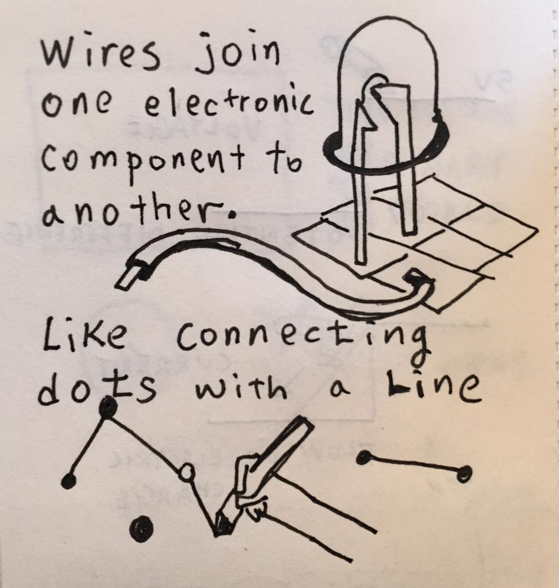 Wires join
one electronic
component to
another.
Like connecting
dots with a line